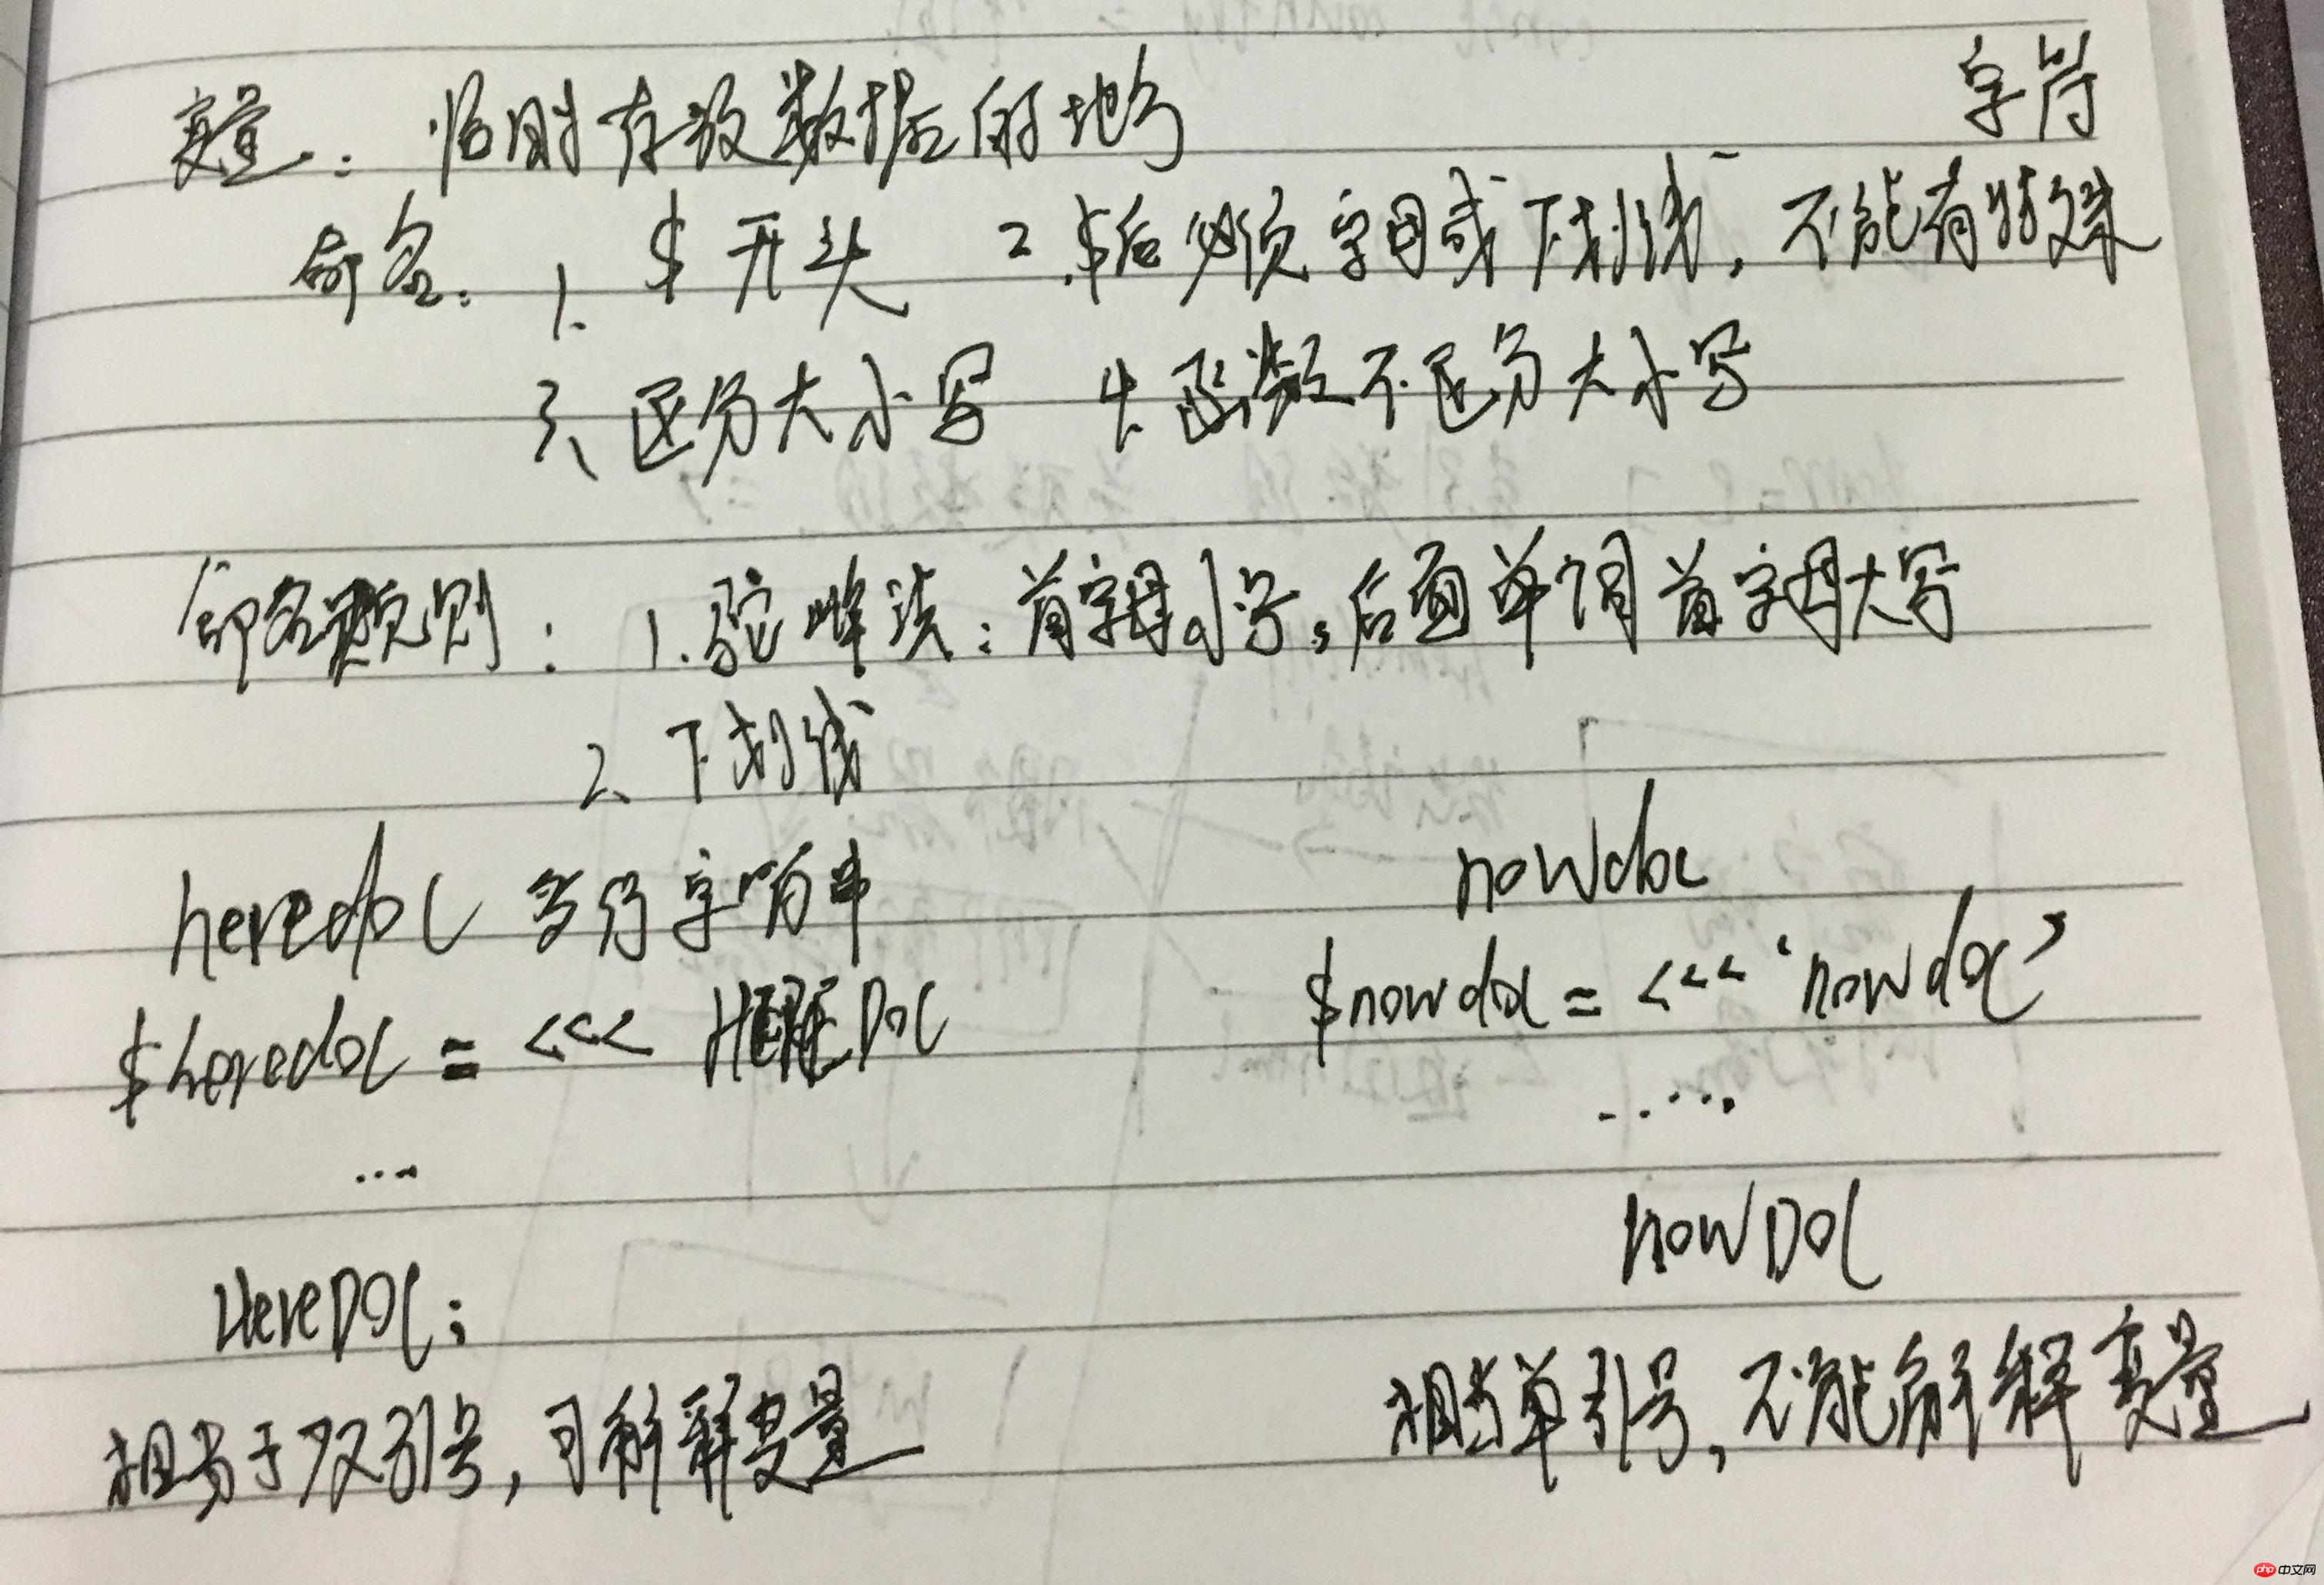 变量：临时存放数据的地方
字符
命名：1. $ 开头 2. $后必须字母或下划线，不能有特殊
3、区分大小写 4. 函数不区分大小写
命名规则：1. 驼峰法：首字母小写，后面单词首字母大写
2、下划线
heredoc 多行字符串
nowdoc
$heredoc = <<< HEREDOC
$nowdoc = <<< 'nowdoc'
...
.....
HereDOC;
nowDOC
相当于双引号，可解释变量
相当单引号，不能解释变量
php 中文网